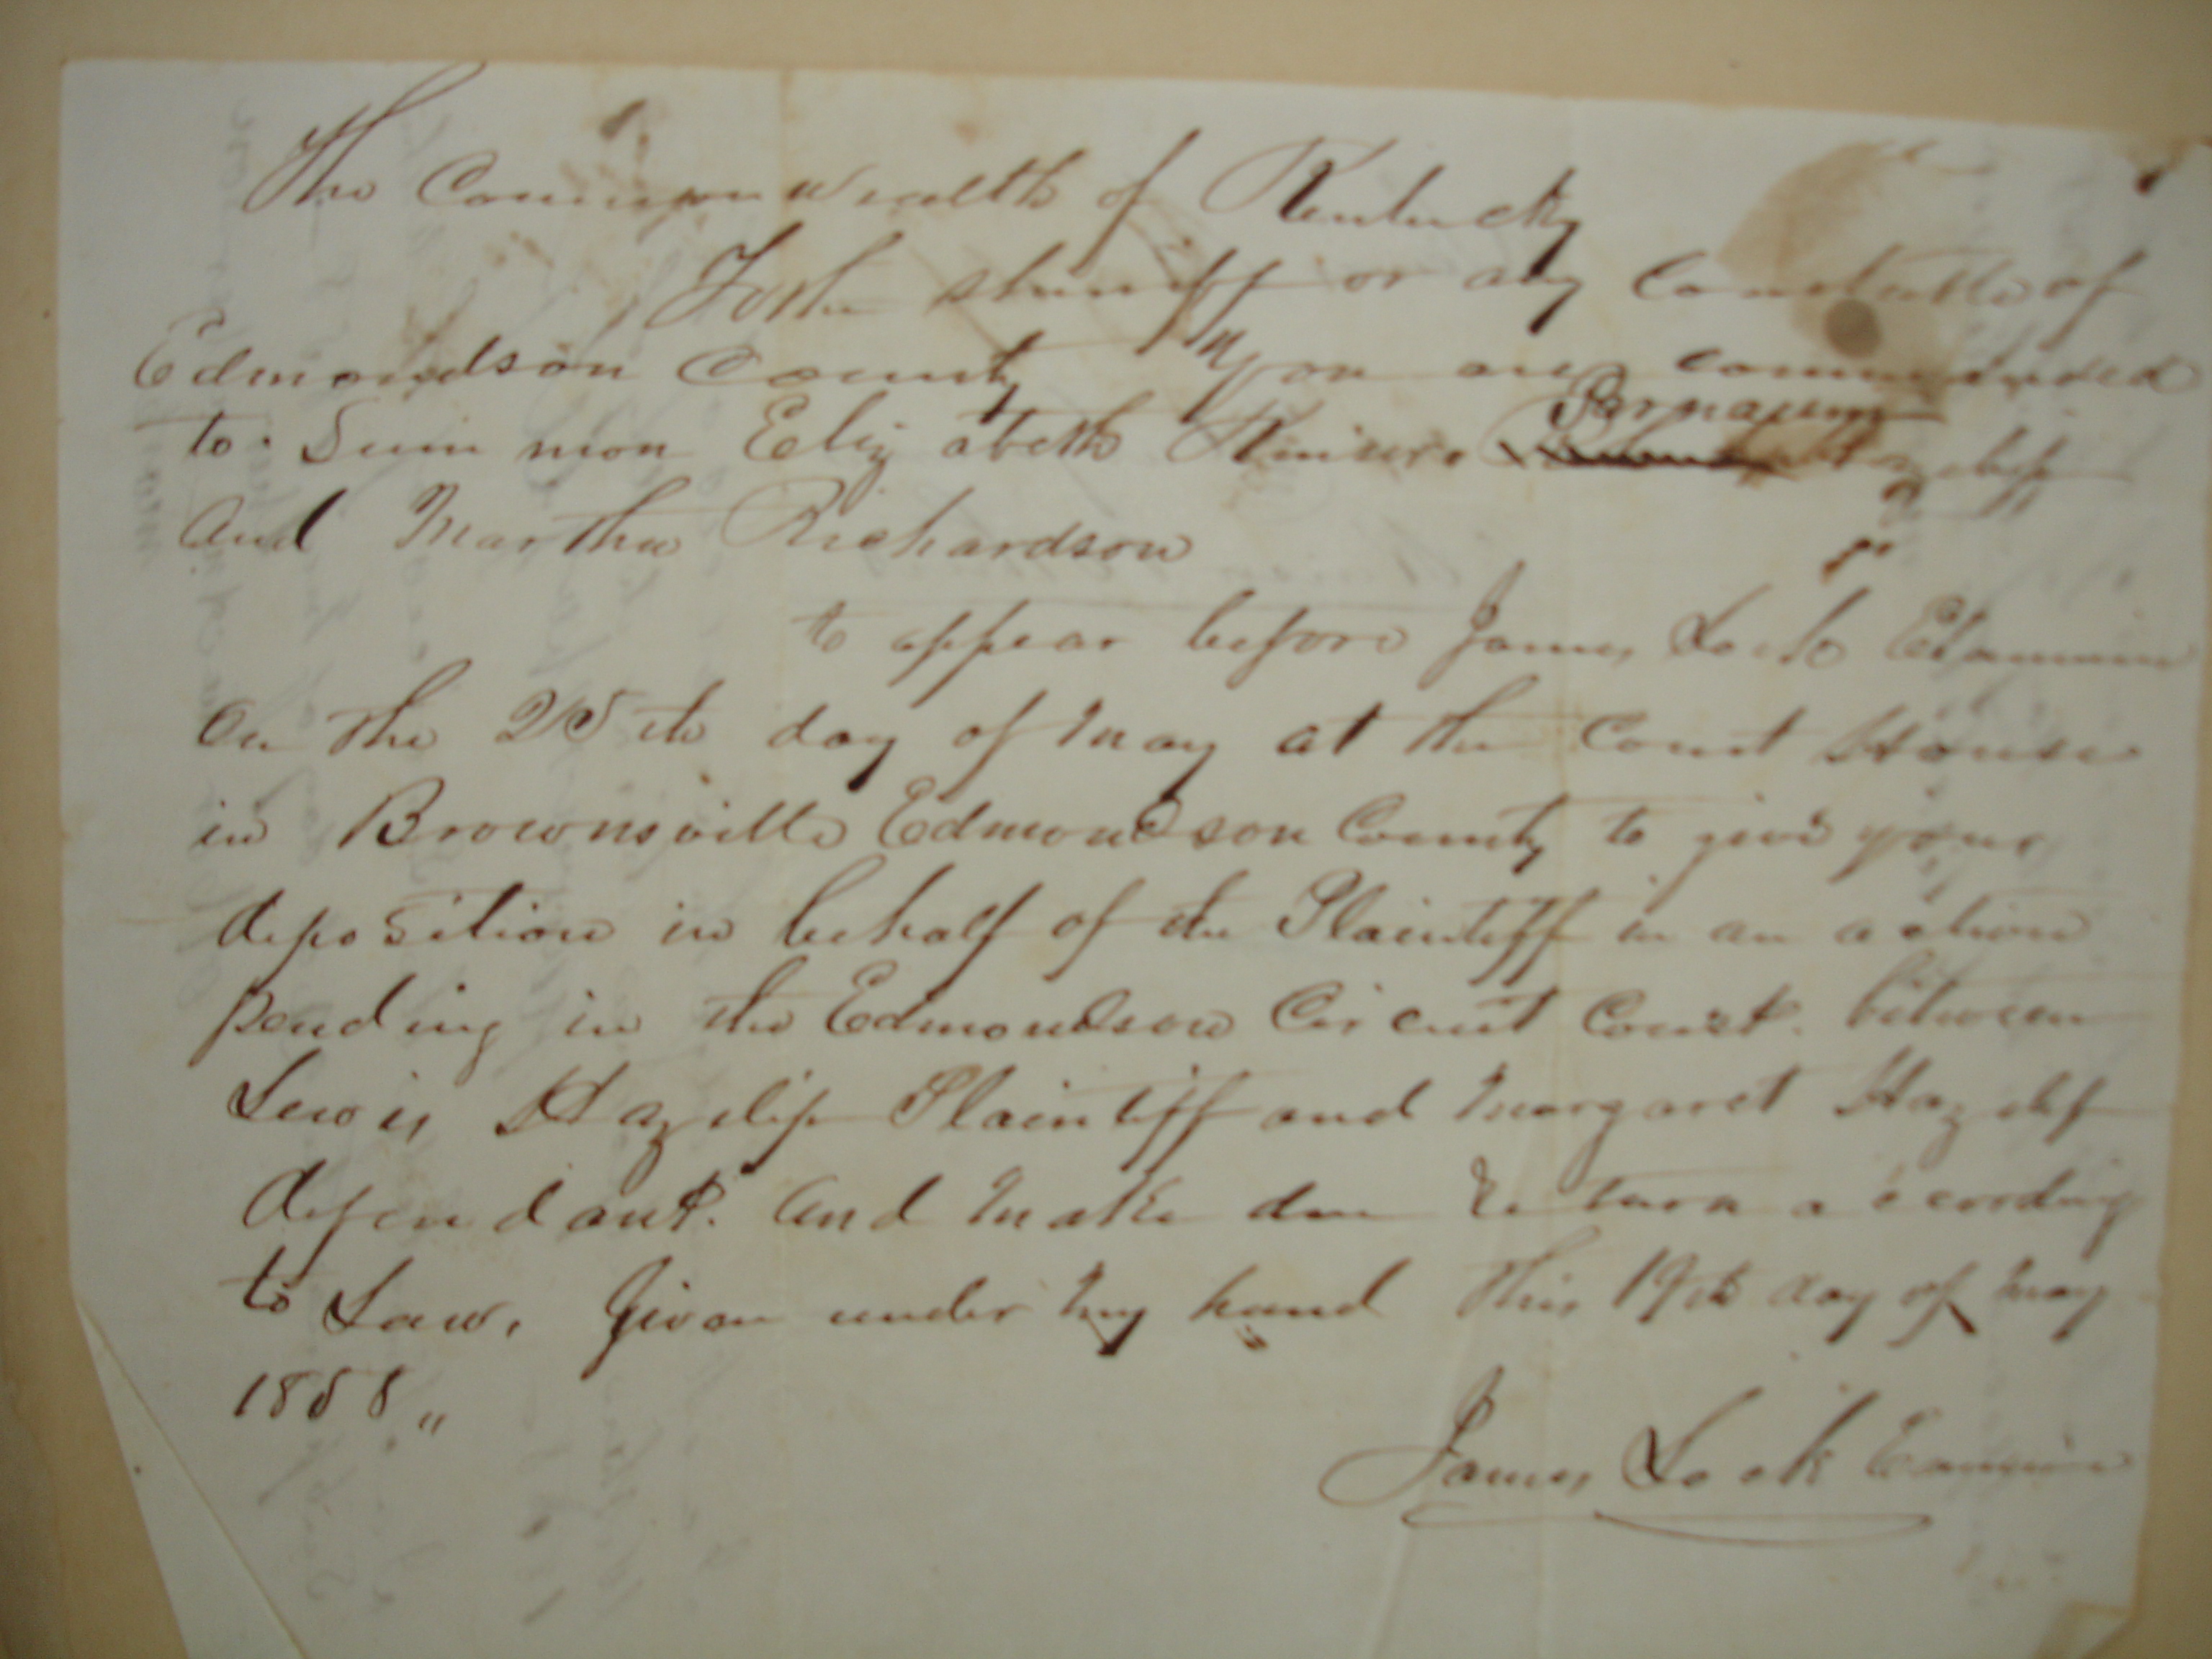 The Commonwealth of Kentucky
To the sheriff or any Constable of
Edmondson County You are commanded
to Summon Elizabeth Hazelip
and Martha Richardson
to appear before James Lock Examiner
On the 25th day of May at the Court House
in Brownsville Edmondson County to give your
deposition in behalf of the Plaintiff in an action
pending in the Edmondson Circuit Court. between
Lewis Hazelip Plaintiff and Margaret Hazelip
defendant. and make due return according
to Law, Given under my hand this 19th day of May
1858 "
James Lock Examiner